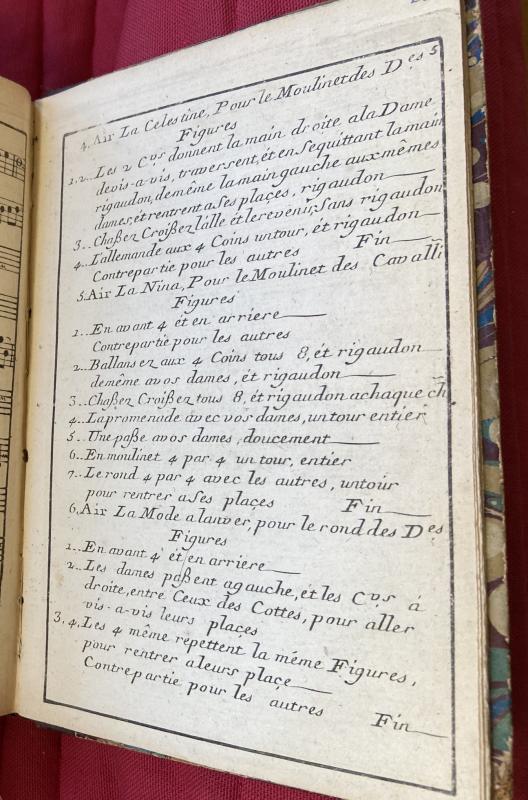 4. Air La Celestine, Pour le Moulinet des D.es 5
Figures
1, 2.. Les 2 C.vrs donnent la main droite a la Dame
devis-a-vis, traversent, ét en se quittant la main
rigaudon, de même la main gauche aux mêmes
dames, ét rentrent a Ses plaçes, rigaudon
3.. Chaßez Croißez l'alle ét le revenir, Sans rigaudon
4.. L'allemande aux 4 Coins un tour, ét rigaudon
Contrepartie pour les autres Fin
5. Air La Nina, Pour le Moulinet des Cavalli
Figures
1.. En avant 4 ét en arriere
Contrepartie pour les autres
2.. Ballansez aux 4 Coins tous 8, ét rigaudon
demême avos dames, ét rigaudon
3.. Chaßez Croißez tous 8, ét rigaudon achaque ch
4.. La promenade avec vos dames, un tour entier
5.. Une paße avos dames, doucement
6.. En moulinet 4 par 4 un tour, entier
7.. Le rond 4 par 4 avec les autres, un tour
pour rentrer a Ses plaçes Fin
6. Air La Mode a lanver, pour le rond des D.es
Figures
1.. En avant 4 ét en arriere
2.. Les dames paßent agauche, ét les C.vrs à
droite, entre Ceux des Cottes, pour aller
vis-a-vis leurs places
3, 4. Les 4 même repettent la même Figures,
pour rentrer aleurs plaçe
Contrepartie pour les autres Fin